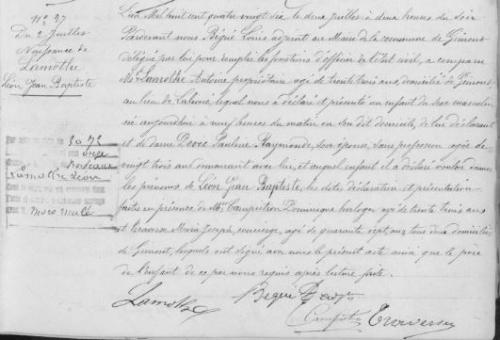 N° 27
Du 2 Juillet
Naissance de
Lamothe
Léon Jean Baptiste
L'an Mil huit cent quatre vingt dix le deux juillet à deux heures du soir
Pardevant nous Bégué Louis adjoint au Maire de la commune de Gimont
délégué par lui pour remplir les fonctions d'officier de l'état civil, a comparu
Mr Lamothe Antoine propriétaire agé de trente trois ans, domicilié de Gimont
au lieu de lequel nous a déclaré et présenté un enfant du sexe masculin
né aujourd'hui à neuf heures du matin en son dit domicile, de lui déclarant
et de dame Pauline Raymonde, son épouse, sans profession agée de
vingt trois ans demeurant avec lui, et auquel enfant il a déclaré vouloir donner
les prénoms de Léon Jean Baptiste, les dites déclaration et présentation
faites en présence de Mr Dominique horloger agé de trente trois ans
et Marie Joseph, concierge, agé de quarante sept ans tous deux domiciliés
de Gimont, lesquels ont signé avec nous le présent acte ainsi que le père
de l'enfant de ce par nous requis après lecture faite.
Lamothe
Bégué
Lamothe Léon